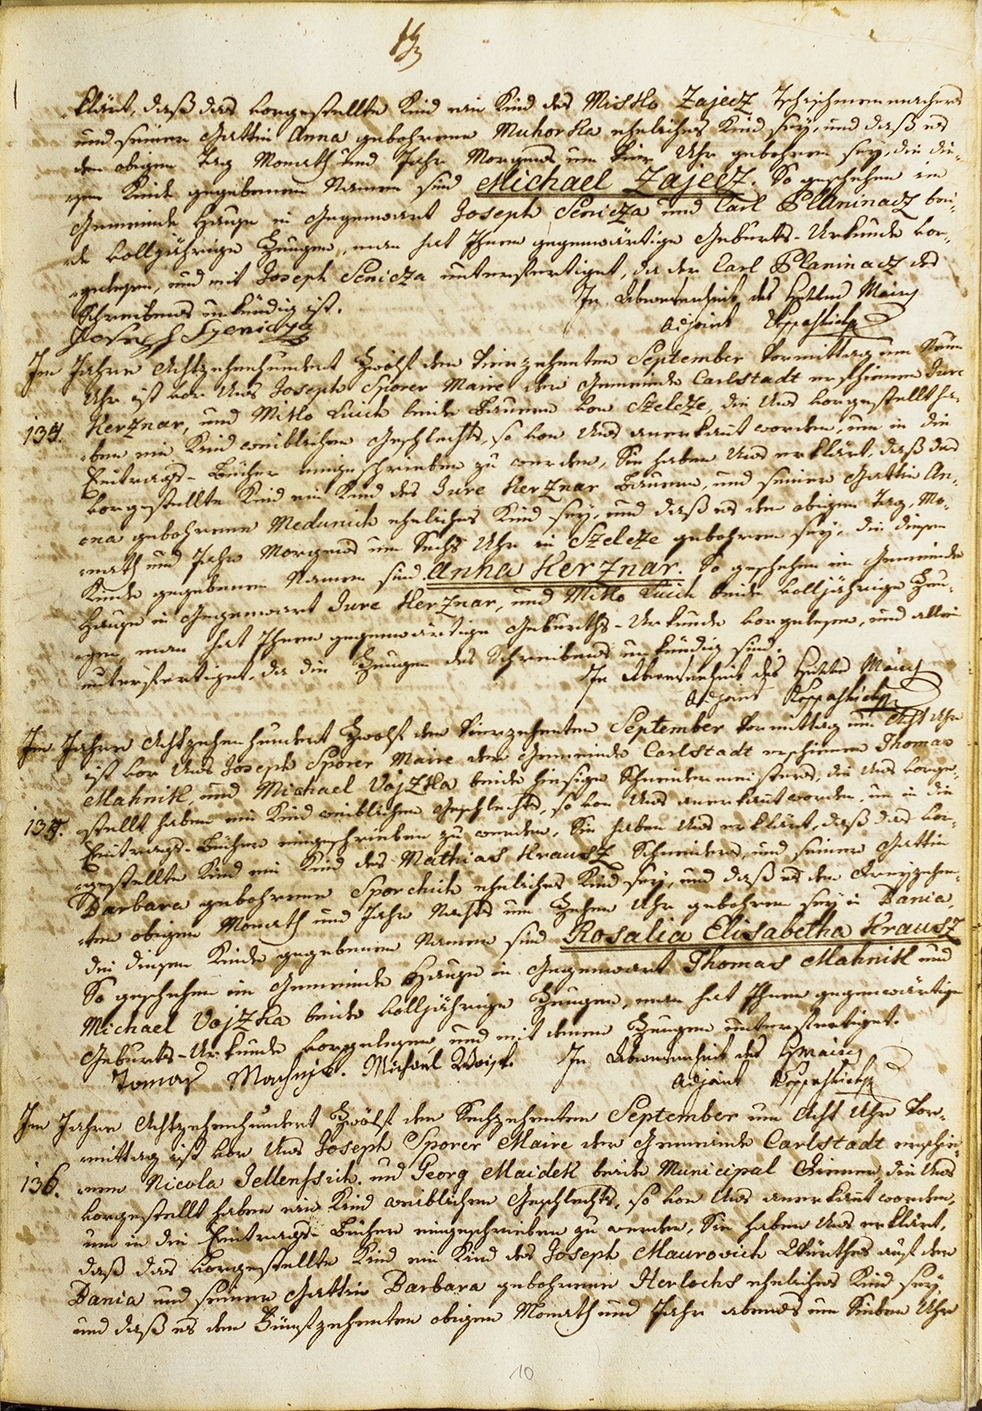 klärt, daß das vorgestellte Kind ein Kind des Mistko Zajecz Tschischmenmachers
und seiner Gattin Anna gebohrene Muhorka eheliches Kind sey, und daß es
den obigen Tag Monath und Jahr Morgens um Uhr gebohren sey, die die-
sem Kinde gegebenen Namen sind Michael Zajecz. So geschehen im
Gemeinde Hause in Gegenwart Joseph Senicza und Carl Planinacz bei-
de volljährige Zeugen, man hat Ihnen gegenwärtige Geburts-Urkunde vor-
gelesen, und mit Joseph Senicza unterfertiget, da der Carl Planinacz des
Schreibens unkündig ist.
In Abwesenheit des Herrn Maire
Joseph Szenicza
Adjoint
Im Jahre Achtzehenhundert Zwölf den Vierzehenten September Vormittag um Neun
Uhr ist vor Uns Joseph Sporer Maire der Gemeinde Carlstadt erschienen Jure
134. Kerznar, und Mitko Luich beide Bauern von Szelcze, die Uns vorgestellt ha-
ben ein Kind weiblichen Geschlechts, so von Uns anerkannt worden, um in die
Eintrags-Bücher eingeschrieben zu werden, Sie haben Uns erklärt, daß das
vorgestellte Kind ein Kind des Jure Kerznar Bauern, und seiner Gattin An-
na gebohrene Medunich eheliches Kind sey, und daß es den obigen Tag, Mo-
nath und Jahr Morgens um Sechs Uhr in Szelcze gebohren sey, die diesem
Kinde gegebenen Namen sind Anna Kerznar. So geschehen im Gemeinde
Hause in Gegenwart Jure Kerznar, und Mitko Luich beide volljährige Zeu-
gen, man hat Ihnen gegenwärtige Geburths-Urkunde vorgelesen, und allein
unterfertiget, da die Zeugen des Schreibens unkündig sind.
In Abwesenheit des Herrn Maire
Adjoint
Im Jahre Achtzehenhundert Zwölf den Vierzehenten September Vormittag um Acht Uhr
ist vor Uns Joseph Sporer Maire der Gemeinde Carlstadt erschienen Thomas
Mahnik, und Michael Vojzka beide hiesige Schneidermeisters, die Uns vorge-
135. stellt haben ein Kind weiblichen Geschlechts, so von Uns anerkannt worden, um in die
Eintrags-Bücher eingeschrieben zu werden, Sie haben Uns erklärt, daß das vor-
gestellte Kind ein Kind des Mathias Krausz Schneiders, und seiner Gattin
Barbara gebohrene Sporchich eheliches Kind sey, und daß es den Dreyzehen-
ten obigen Monath und Jahr Nachts um Zehen Uhr gebohren sey in Bania,
die diesem Kinde gegebenen Namen sind Rosalia Elisabetha Krausz
So geschehen im Gemeinde Hause in Gegenwart Thomas Mahnik und
Michael Vojzka beide volljährige Zeugen, man hat Ihnen gegenwärtige
Geburts-Urkunde vorgelesen, und mit denen Zeugen unterfertiget.
Tomas Machnik. Michael In Abwesenheit des H Maire
Adjoint
Im Jahre Achtzehenhundert Zwölf den Sechzehenten September um Acht Uhr Vor-
mittag ist vor Uns Joseph Sporer Maire der Gemeinde Carlstadt erschie-
136. nen Nicola Jellenssich, und Georg Maidek beide Municipal Diener, die Uns
vorgestellt haben ein Kind weiblichen Geschlechts, so von Uns anerkannt worden,
um in die Eintrags-Bücher eingeschrieben zu werden, Sie haben Uns erklärt,
daß das vorgestellte Kind ein Kind des Joseph Maurovich Würthes auf der
Bania und seiner Gattin Barbara gebohrene Herlochs eheliches Kind sey
und daß es den Fünfzehenten obigen Monath und Jahr abends um Sieben Uhr
10